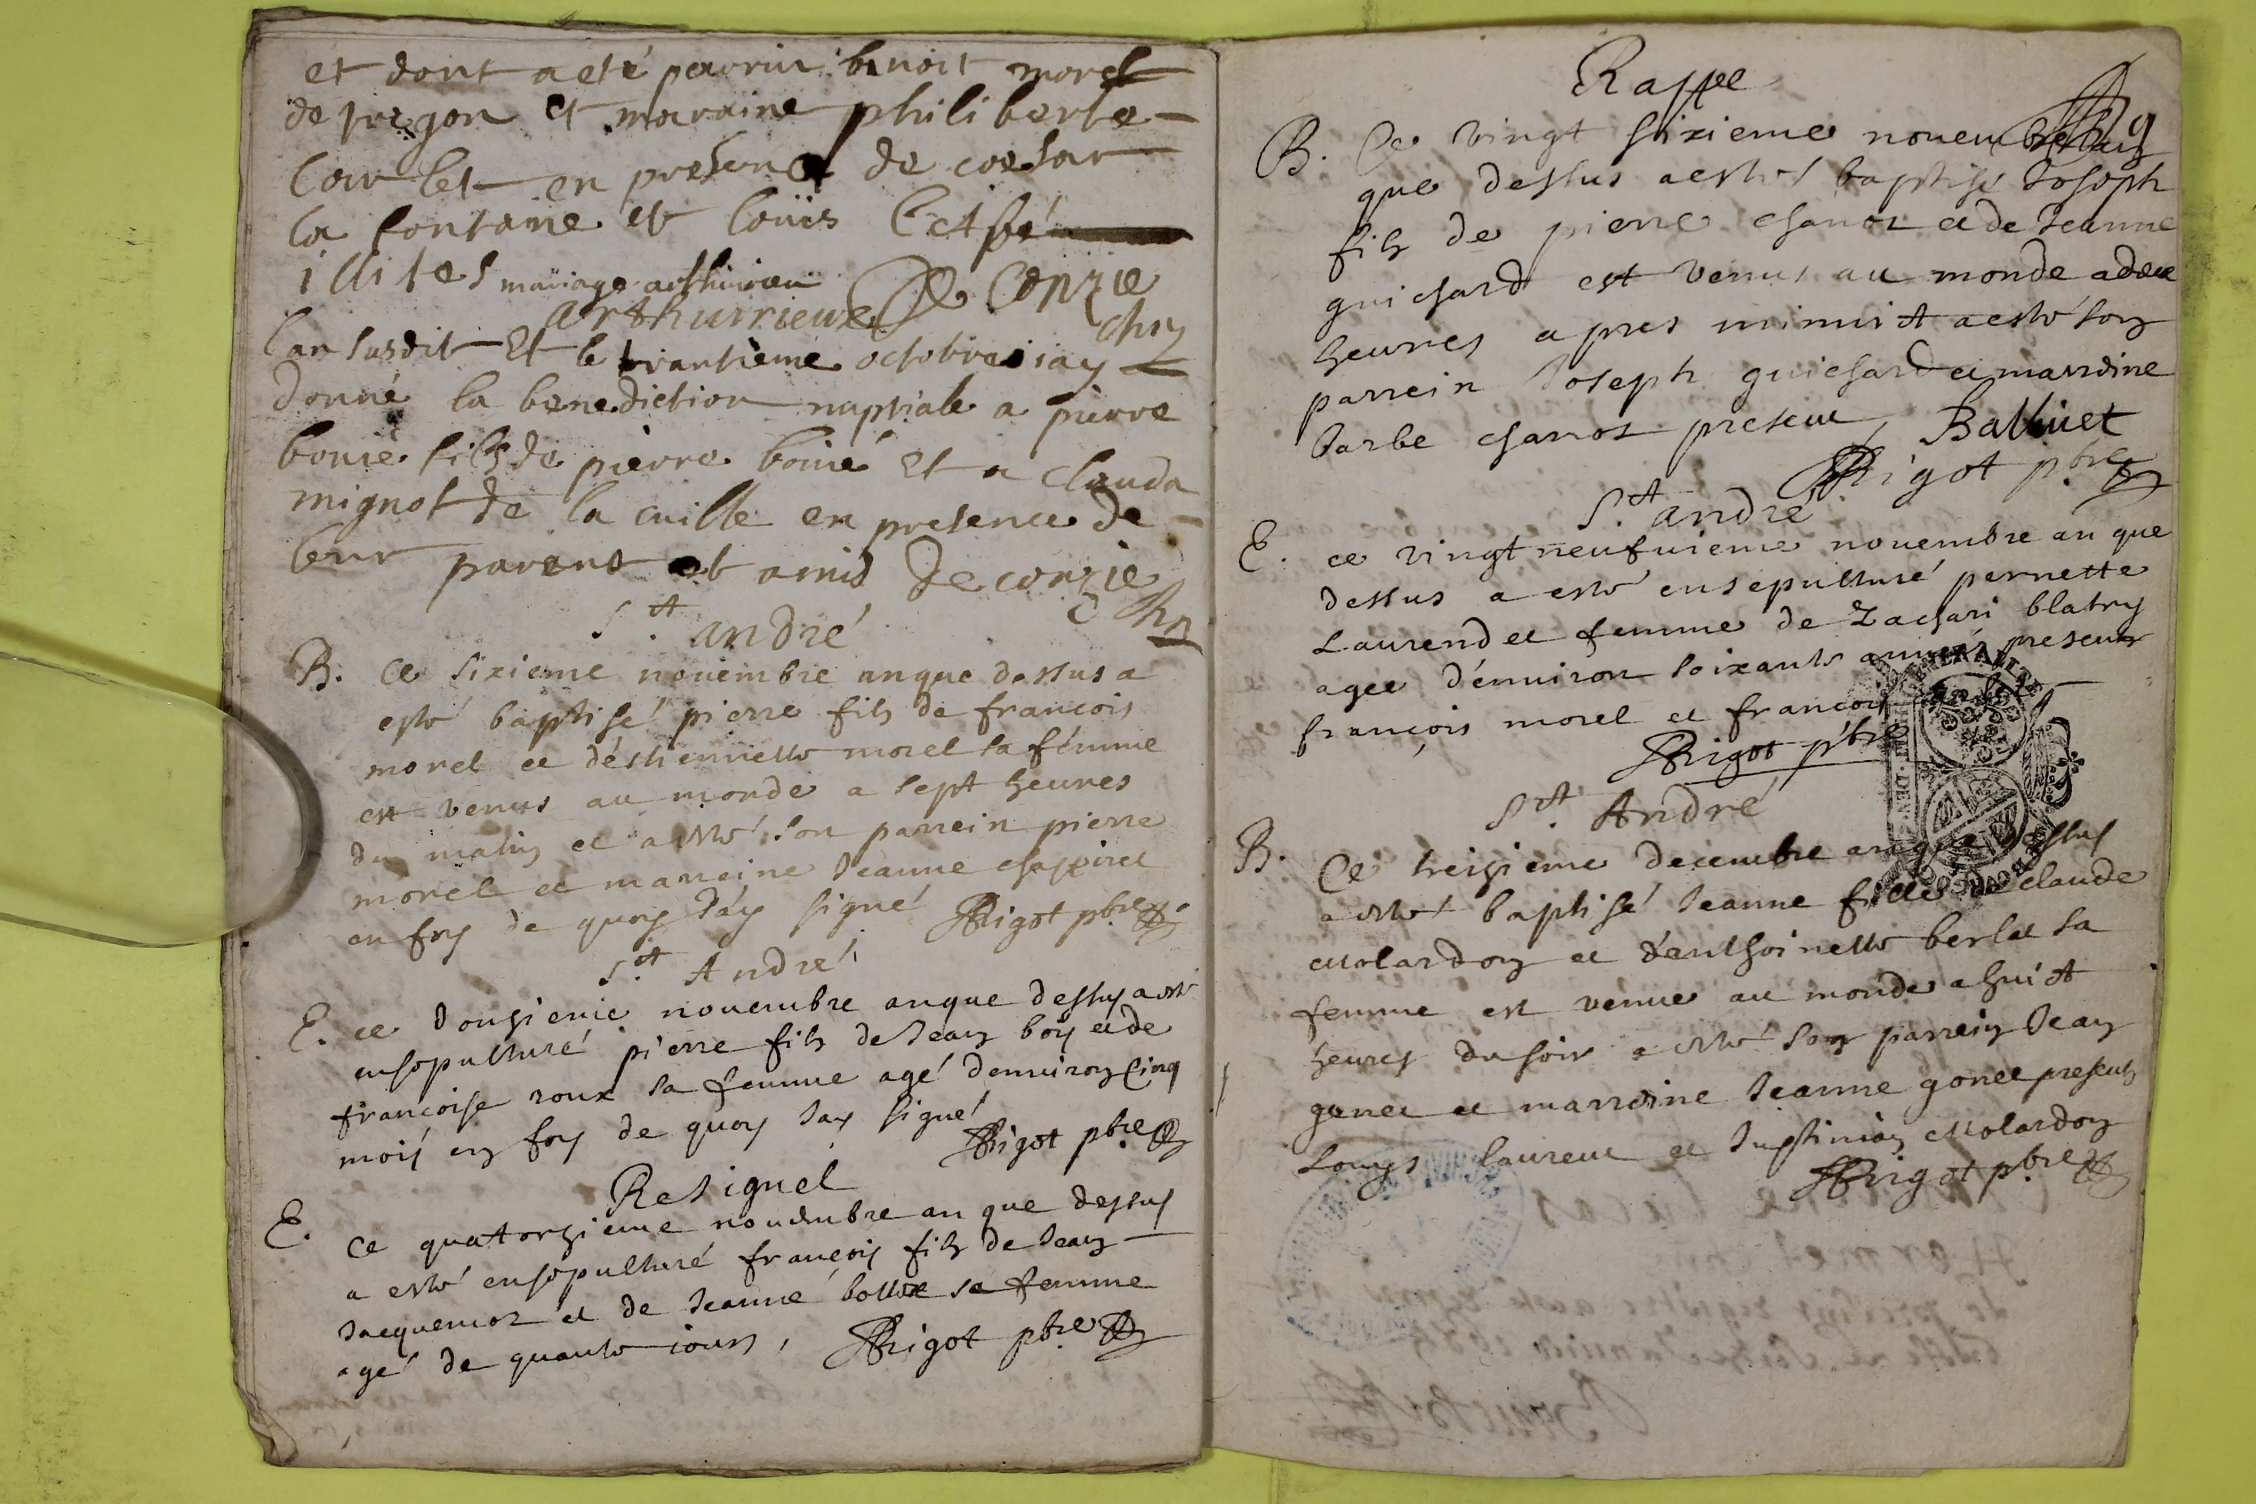 et dont a eté parrin benoit morel
de et maraine philiberte
en presence de coesar
la fontaine et loüis
illites mariage arthurrieux
arthurrieux De Conzie
lan susdit Et le trantieme octobre iay chn
donné la benediction nuptiale a pierre
bonié fils de pierre bonié Et a Clauda
mignot de la cuille en presence de
leur parent et amis De conzie
chn
S.t andré
B. Ce sixieme nouembre anque dessus a
esté baptisé pierre fils de francois
morel et déstiennette morel sa femme
est venus au monde a sept heures
du matin et a esté son parrein pierre
morel et marreine Jeanne
en foy de quoy J'ay signé Rigot pbre
S.t André
E. ce douzieme nouembre anque dessus a esté
ensepulturé pierre fils de Jean boy et de
françoise roux sa femme agé denuiron Cinq
mois en foy de quoy Jay signé
Rigot pbre
Resignel
E. Ce quatorzieme nouembre an que dessus
a esté ensepulturé françois fils de Jean
Jacquemoz et de Jeanne sa femme
agé de quante iours, Rigot pbre
Rasppe
B. Ce vingt sixieme nouembre
que dessus a esté baptisé Joseph
fils de pierre chanoz et de Jeanne
guichard est venus au monde a deux
heures apres minuit a esté son
parrein Joseph guichard et marreine
barbe charroz present, Balliuet
Rigot pbre
S.t andré
E. ce vingt neufuieme nouembre an que
dessus a esté ensepulturé pernette
Laurendet femme de Zachari blatry
agee d'enuiron soixante années presents
françois morel et françois
Rigot pbre
S.t André
B. Ce treizieme decembre anque dessus
a esté baptisé Jeanne fille de claude
Molardon et d'enthoinette berlet sa
femme est venue au monde a huict
heures du soir a esté son parrein Jean
gonet et marreine Jeanne gonet presents
Louys laurent et Justinian Molardon
Rigot pbre